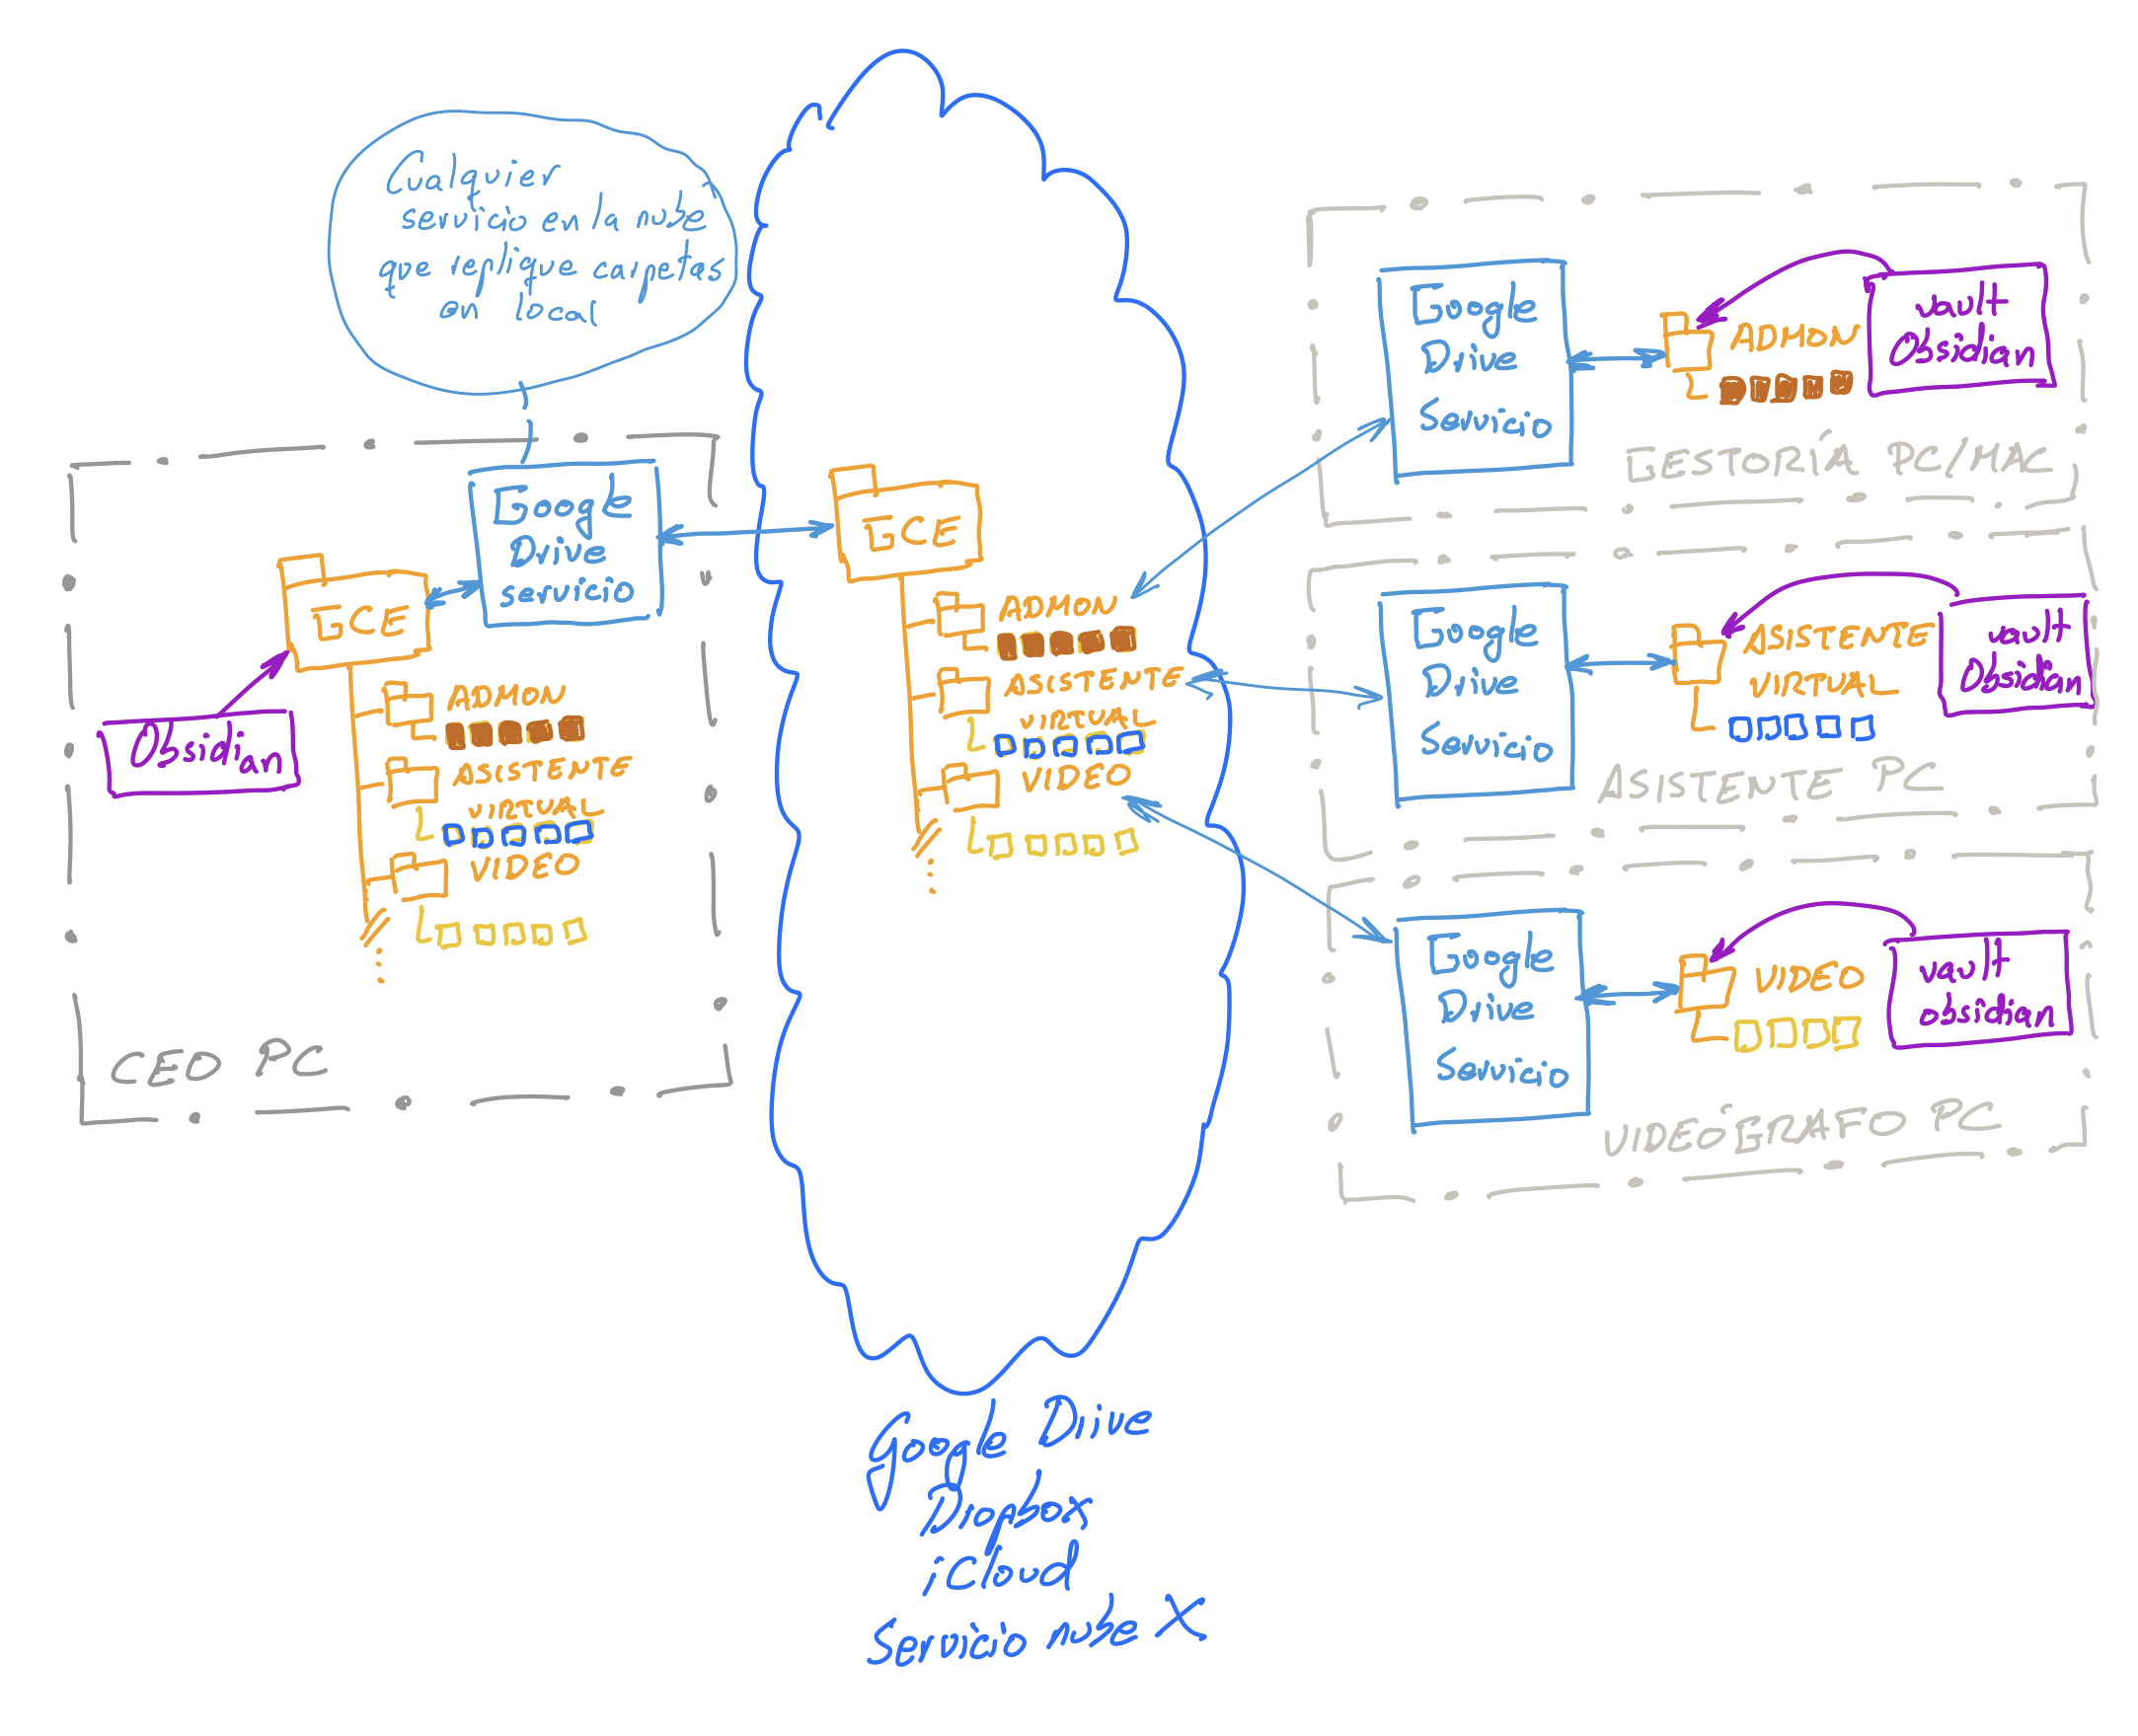 Cualquier
servicio en la nube
que replique carpetas
en local
Google
Drive
servicio
GCE
Obsidian
ADMON
ASISTENTE
VIRTUAL
VIDEO
CEO PC
GCE
ADMON
ASISTENTE
VIRTUAL
VIDEO
Google Drive
Dropbox
iCloud
Servicio nube X
Google
Drive
Servicio
ADMON
vault
Obsidian
GESTORÍA PC/MAC
Google
Drive
Servicio
ASISTENTE
VIRTUAL
vault
Obsidian
ASISTENTE PC
Google
Drive
Servicio
VIDEO
vault
obsidian
VIDEÓGRAFO PC